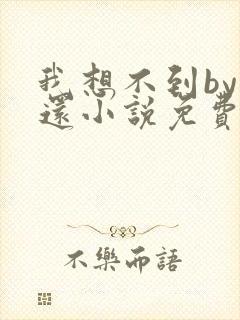 我想不到by
還小説免費
不樂而語